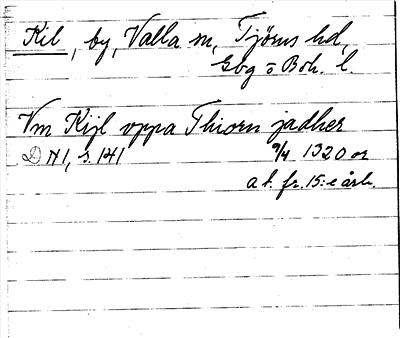 Kil, by, Valla sn, Tjörns hd,
Gbg o Boh. l.
Vm Kijl vppa Thiorn jadher
DN I, s. 141 9/4 1320 or
a f. fr. 15:e årh.